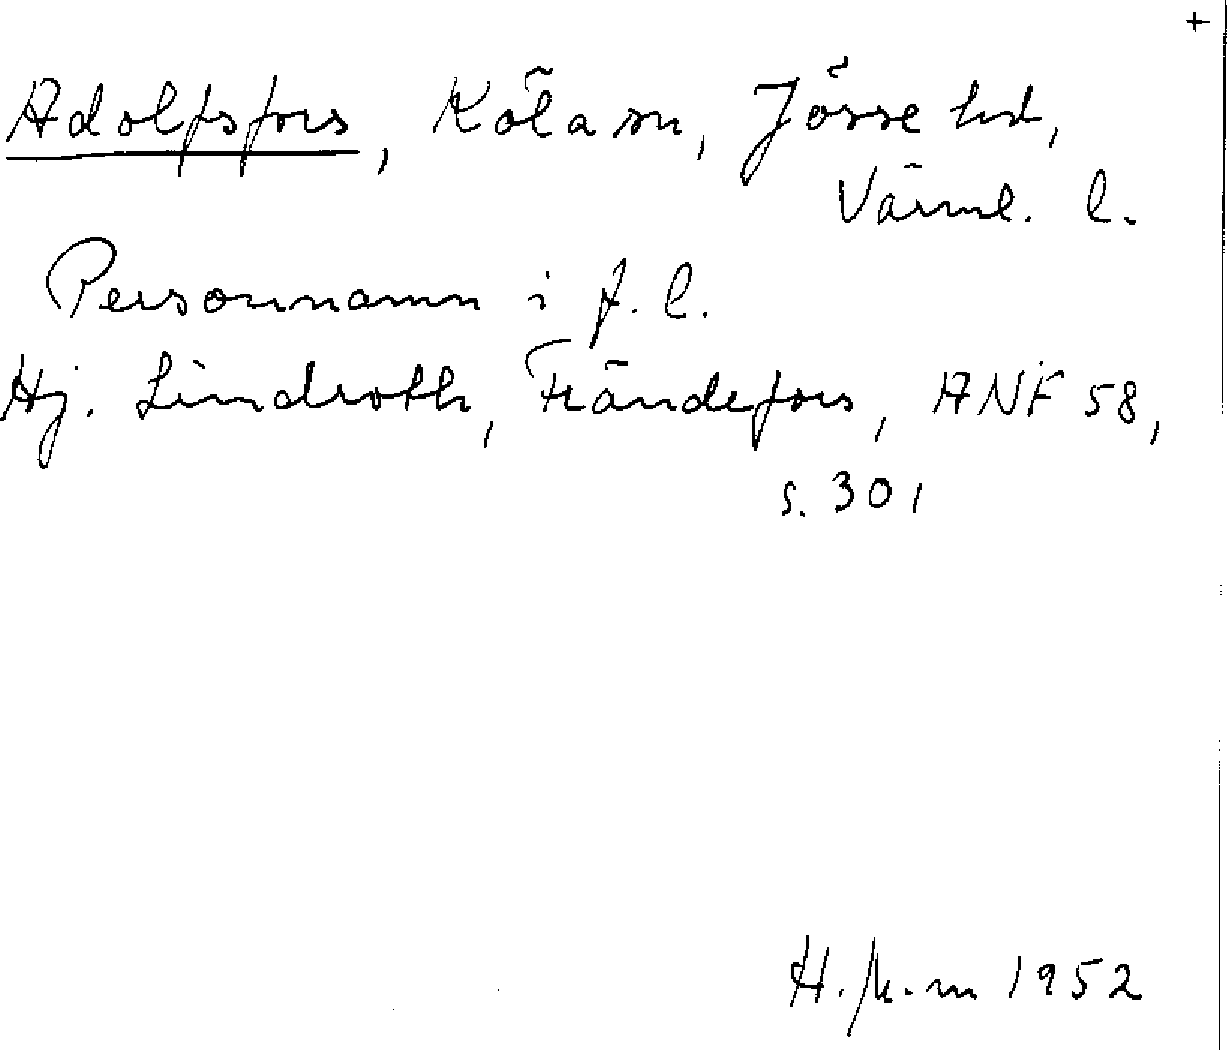 +
Adolfsfors, Köla sn, Jösse hd,
Värml. l.
Personnamn i f. l.
Hj. Lindroth, Frändefors, ANF 58,
s. 301
1952